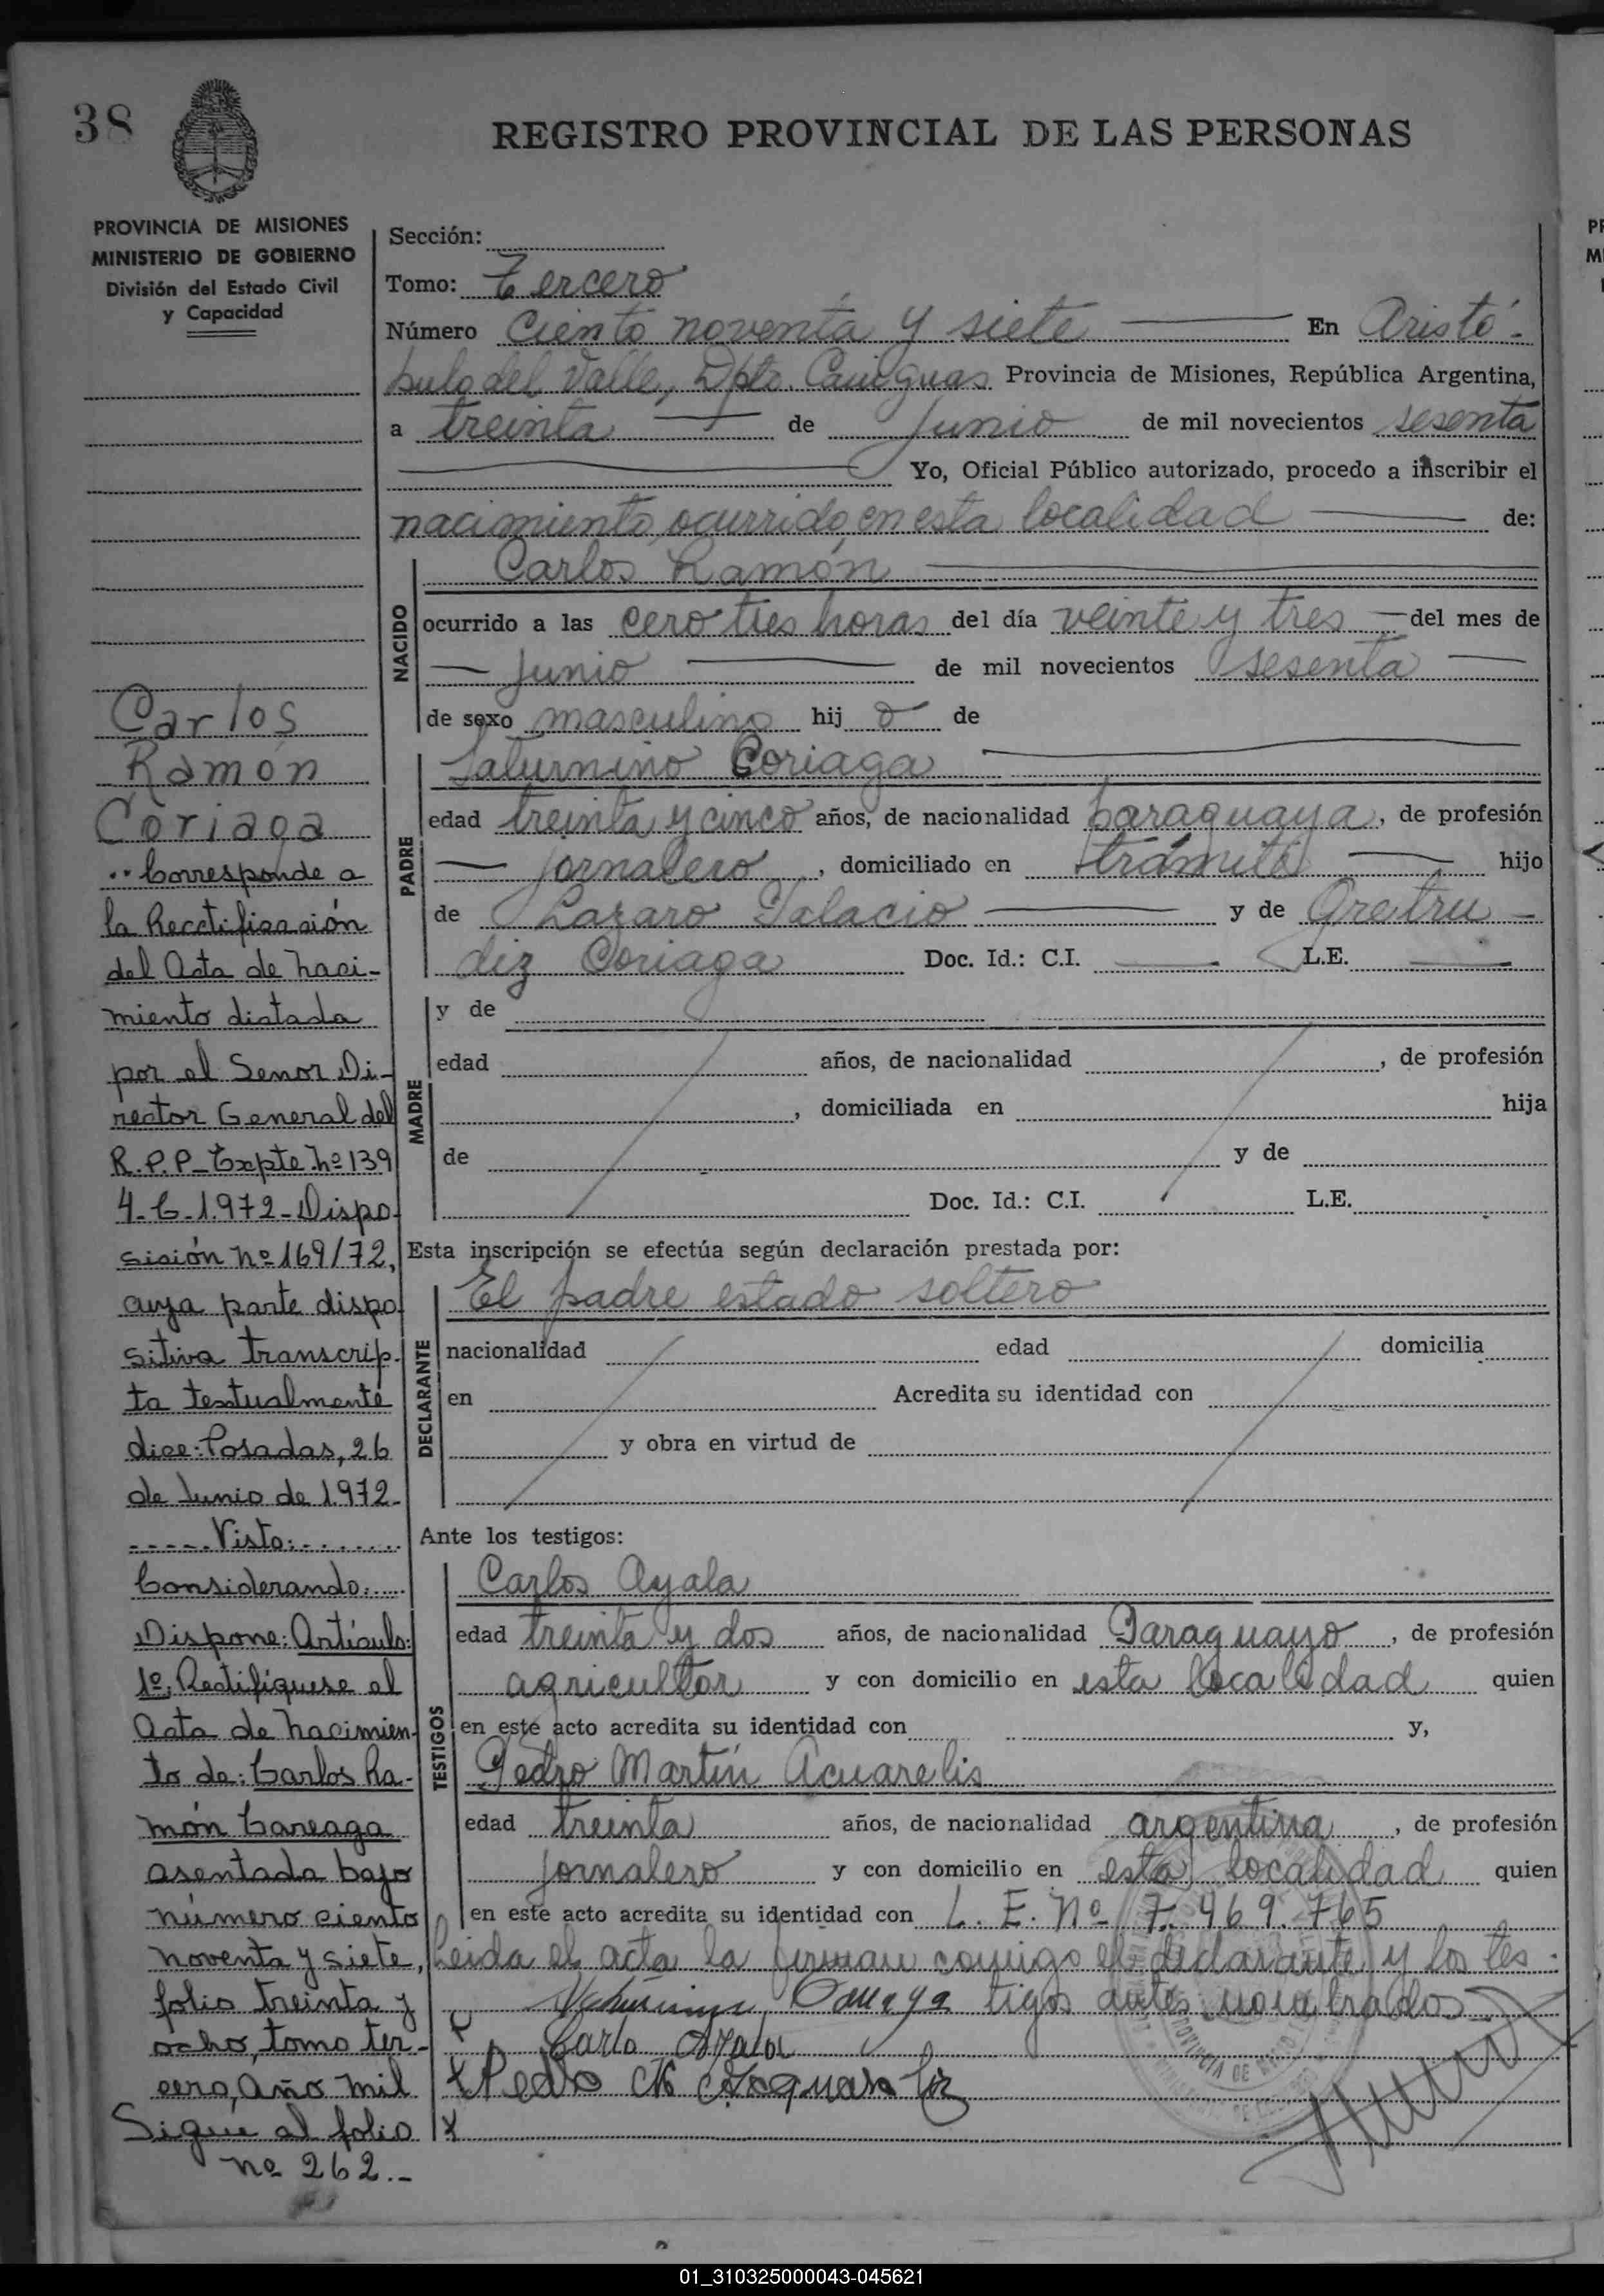 38
REGISTRO PROVINCIAL DE LAS PERSONAS
PROVINCIA DE MISIONES
MINISTERIO DE GOBIERNO
División del Estado Civil
y Capacidad
Carlos
Ramón
Coriaga
.. Corresponde a
la Recctificasión
del Acta de Naci-
miento dictada
por el Senor Di-
rector General del
R.P.P_Expte Nº 139
4-C-1.972-Dispo-
sición Nº 169/72,
cuya parte dispo-
sitiva transcrip-
ta textualmente
dice: Posadas, 26
de Junio de 1.972-
-----Visto:.......
Considerando:.....
Dispone: Artículo:
1º: Rectifíquese el
Acta de Nacimien-
to de: Carlos Ra-
món Careaga
asentada bajo
número ciento
noventa y siete,
folio treinta y
ocho, tomo ter-
cero, Año mil
Sigue al folio
Nº 262.-
Sección:
Tomo: Tercero
Número Ciento noventa y siete En Aristó-
bulo del Valle, Dpto. Cainguas Provincia de Misiones, República Argentina,
a treinta de Junio de mil novecientos sesenta
Yo, Oficial Público autorizado, procedo a inscribir el
nacimiento ocurrido en esta localidad de:
NACIDO
Carlos Ramón
ocurrido a las cero tres horas del día veinte y tres del mes de
Junio de mil novecientos sesenta
de sexo masculino hij o de
PADRE
Saturnino Coriaga
edad treinta y cinco años, de nacionalidad paraguaya, de profesión
jornalero, domiciliado en trámite hijo
de Lazaro Palacio y de Gretru-
diz Coriaga Doc. Id.: C.I. L.E.
MADRE
y de
edad años, de nacionalidad , de profesión
, domiciliada en hija
de y de
Doc. Id.: C.I. L.E.
Esta inscripción se efectúa según declaración prestada por:
DECLARANTE
El padre estado soltero
nacionalidad edad domicilia
en Acredita su identidad con
y obra en virtud de
Ante los testigos:
TESTIGOS
Carlos Ayala
edad treinta y dos años, de nacionalidad Paraguayo, de profesión
agricultor y con domicilio en esta localidad quien
en este acto acredita su identidad con y,
Pedro Martín Acuarelis
edad treinta años, de nacionalidad argentina, de profesión
jornalero y con domicilio en esta localidad quien
en este acto acredita su identidad con L. E. Nº 7.469.765
Leida el acta la firman conmigo el declarante y los tes-
tigos antes nombrados
Carlo Ayala
Pedro M
01_310325000043-045621